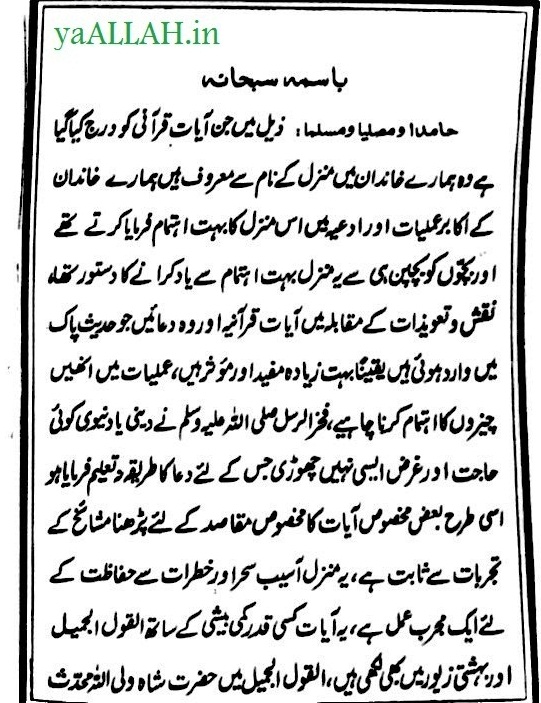 yaALLAH.in
باسمہ سبحانہ
حامدا ومصلیا ومسلما: ذیل میں جن آیات قرآنی کو درج کیا گیا
ہے وہ ہمارے خاندان میں منزل کے نام سے معروف ہیں ہمارے خاندان
کے اکابر عملیات اور ادعیہ میں اس منزل کا بہت اہتمام فرمایا کرتے تھے
اور بچّوں کو بچپن ہی سے یہ منزل بہت اہتمام سے یاد کرانے کا دستور تھا،
نقش و تعویذات کے مقابلہ میں آیات قرآنیہ اور وہ دعائیں جو حدیث پاک
میں وارد ہوئی ہیں یقیناً بہت زیادہ مفید اور مؤثر ہیں، عملیات میں انھیں
چیزوں کا اہتمام کرنا چاہیے، فخر الرسل صلی اللہ علیہ وسلم نے دینی یا دنیوی کوئی
حاجت اور غرض ایسی نہیں چھوڑی جس کے لئے دعا کا طریقہ تعلیم فرمایا ہو
اسی طرح بعض مخصوص آیات کا مخصوص مقاصد کے لئے پڑھنا مشائخ کے
تجربات سے ثابت ہے، یہ منزل آسیب سحر اور خطرات سے حفاظت کے
لئے ایک مجرب عمل ہے، یہ آیات کسی قدر کمی بیشی کے ساتھ القول الجمیل
اور بہشتی زیور میں بھی لکھی ہیں، القول الجمیل میں حضرت شاہ ولی اللہ محدّث